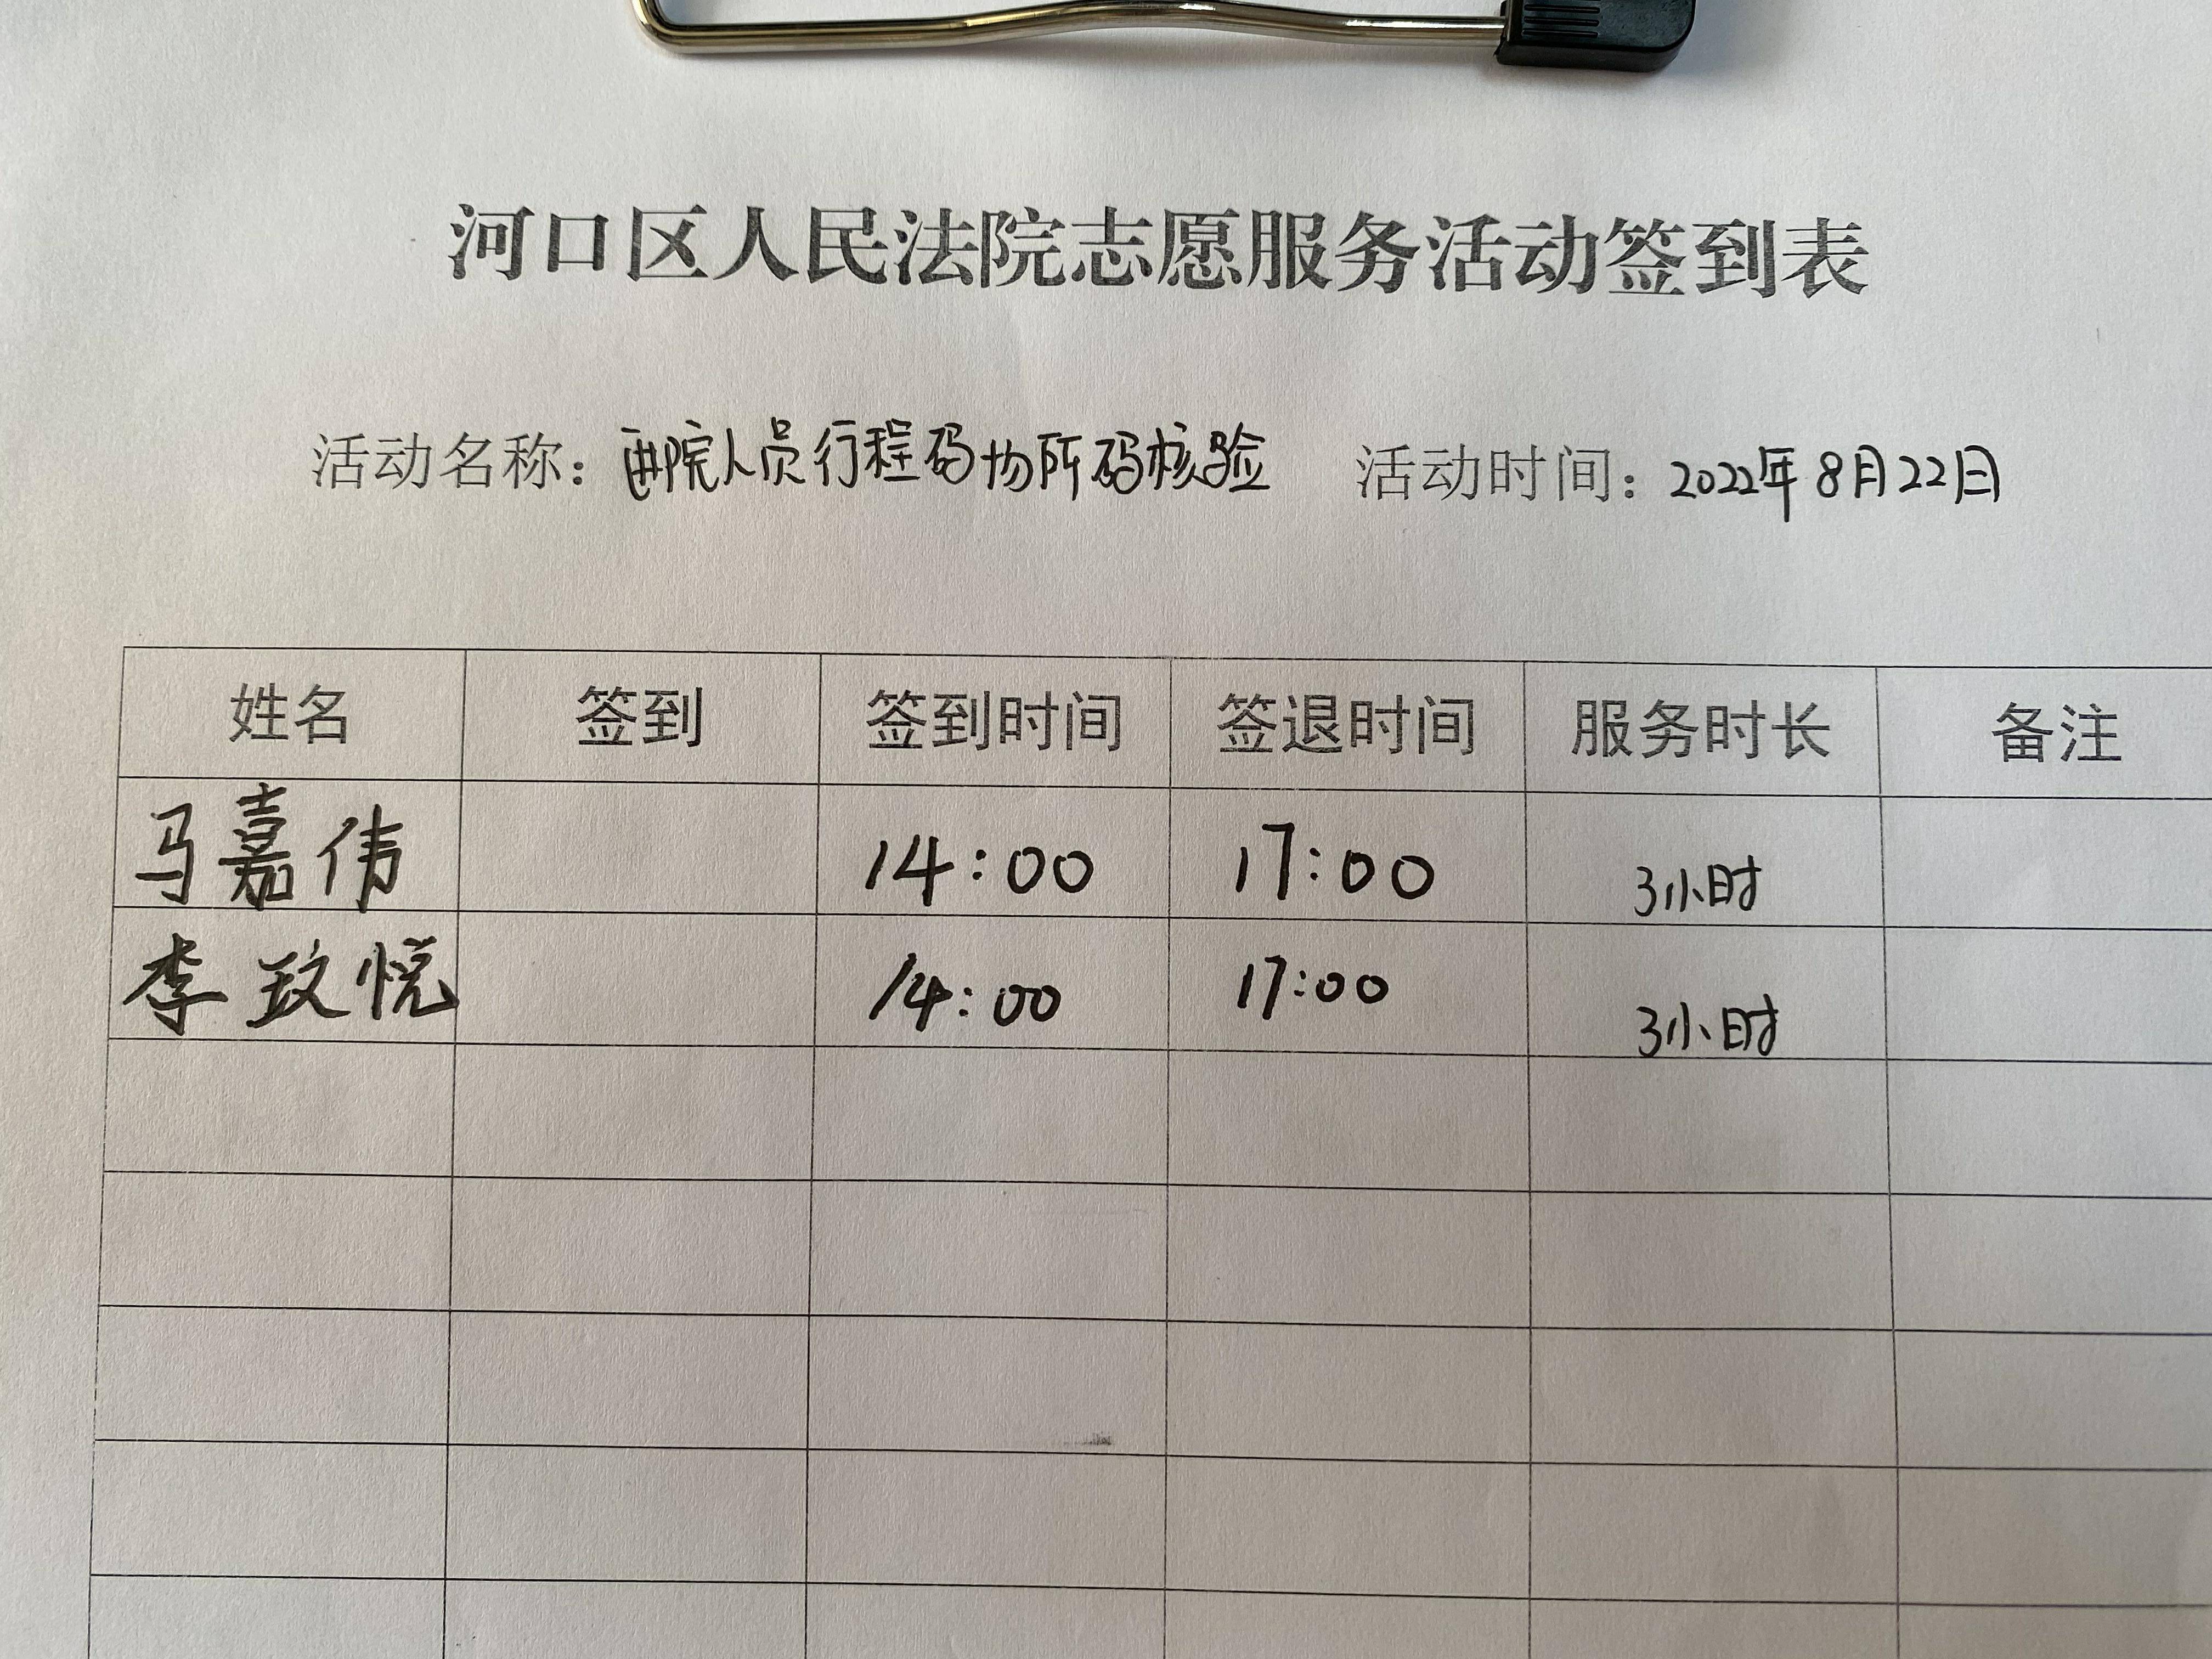 河口区人民法院志愿服务活动签到表
活动名称：进院人员行程码场所码核验 活动时间：2022年8月22日
姓名 签到 签到时间 签退时间 服务时长 备注
马嘉伟 14:00 17:00 3小时
李玟悦 14:00 17:00 3小时